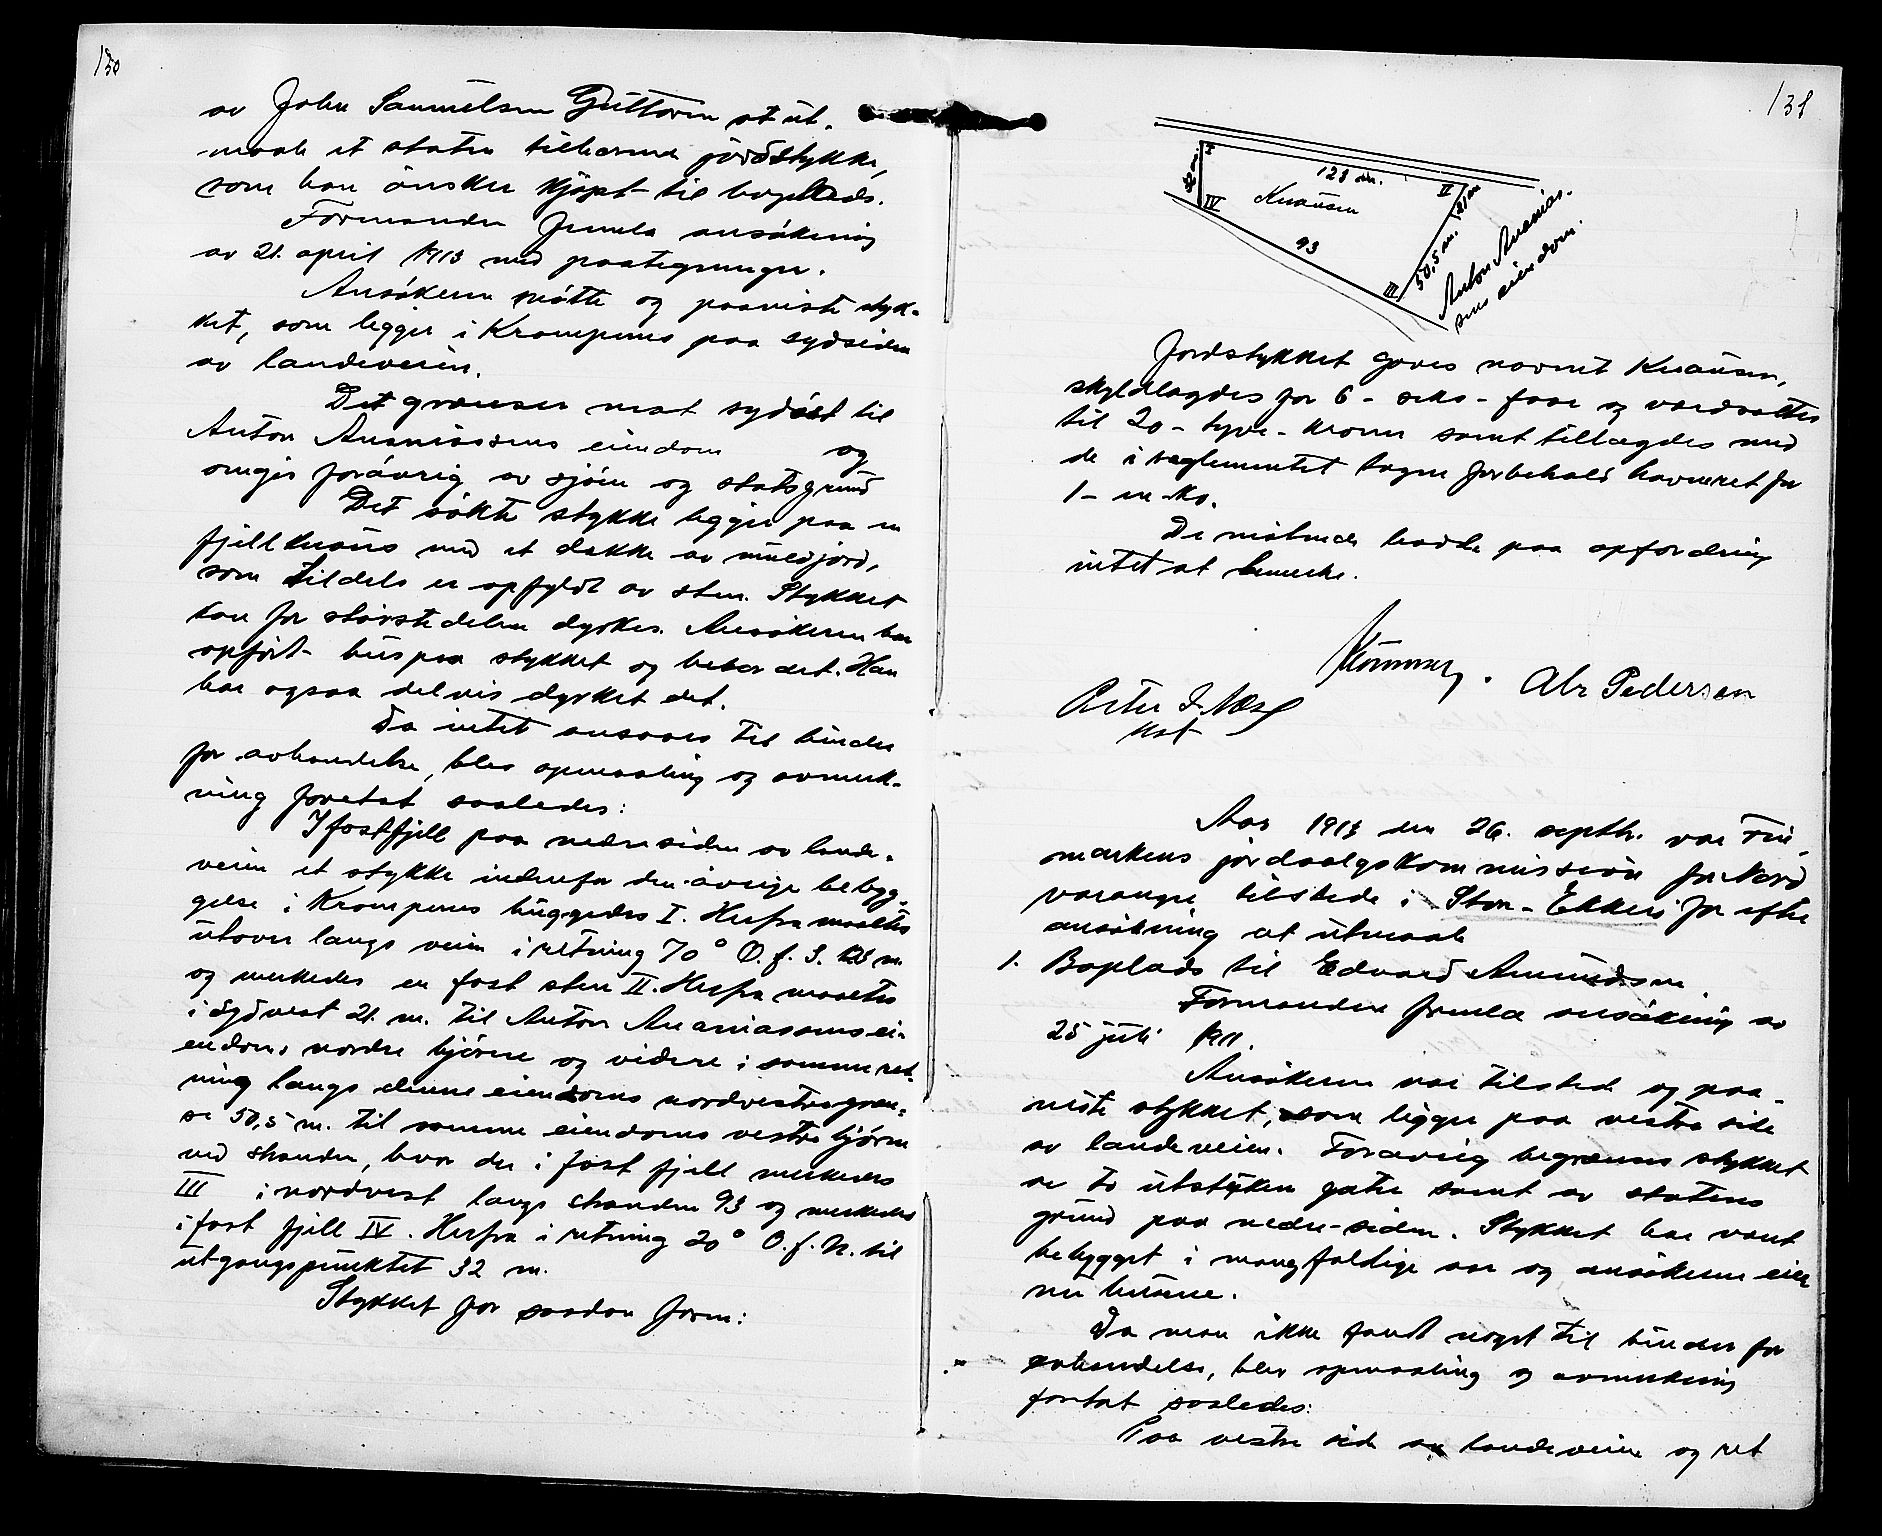 130
av John Samuelsen Guttorm at ut-
maale et staten tilhørende jordstykke,
som han ønsker kjøpt til boplads.
Formanden fremla ansøkning
av 21. april 1913 med paategninger.
Ansøkeren møtte og paaviste styk-
ket, som ligger i Krampenes paa sydsiden
av landeveien.
Det grænser mot sydøst til
Anton Ananiassens eiendom og
omgis forøvrig av sjøen og statsgrund
Det søkte stykke ligger paa en
fjellknaus med et dække av muldjord,
som tildels er opfyldt av sten. Stykket
kan for størstedelen dyrkes. Ansøkeren har
opført hus paa stykket og bebor det. Han
har ogsaa delvis dyrket det.
Da intet ansaaes til hinder
for avhændelse, blev opmaaling og avmerk-
ning foretat saaledes:
I fastfjell paa nedre siden av lande-
veien et stykke indenfor den øvrige bebyg-
gelse i Krampenes huggedes I. Herfra maaltes
utover langs veien i retning 70° Ø. f. S. 128 m.
og merkedes en fast sten II. Herfra maaltes
i sydvest 21. m. til Anton Ananiassens ei-
endoms nordre hjørne og videre i samme ret-
ning langs denne eiendoms nordvestre græn-
se 50,5 m. til samme eiendoms vestre hjørne
ved stranden, hvor der i fast fjell merkedes
III i nordvest langs stranden 93 og merkedes
i fast fjell IV. Herfra i retning 20° Ø. f. N. til
utgangspunktet 32 m.
Stykket har saadan form:
131
I
128 m.
II
32 m.
IV
Knausen
21 m
93
50,5 m.
III
Anton Ananias-
sens eiendom.
Jordstykket gaves navnet Knausen,
skyldlagdes for 6 - seks - øre og værdsattes
til 20 - tyve - kroner samt tillægdes med
de i reglementet tagne forbehold havneret for
1 - en ko.
De møtende hadde paa opfordring
intet at bemerke.
Abr Pedersen
Peter J. Næss
Aar 1913 den 26. septbr. var Fin-
markens jordsalgskommission for Nord
varanger tilstede i Stor-Ekkerø for efter
ansøkning at utmaale
1. Boplads til Edvard Amundsen.
Formanden fremla ansøkning av
25 juli 1911.
Ansøkeren var tilstede og paa-
viste stykket, som ligger paa vestre side
av landeveien. Forøvrig begrænses stykket
av to utstukne gater samt av statens
grund paa nedre-siden. Stykket har været
bebygget i mangfoldige aar og ansøkeren eier
nu husene.
Da man ikke fandt noget til hinder for
avhændelse, blev opmaaling og avmerkning
foretat saaledes:
Paa vestre side av landeveien og ret